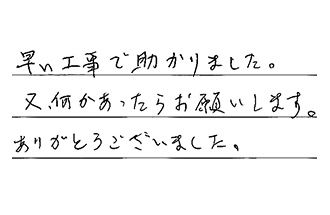 早い工事で助かりました。
又、何かあったらお願いします。
ありがとうございました。